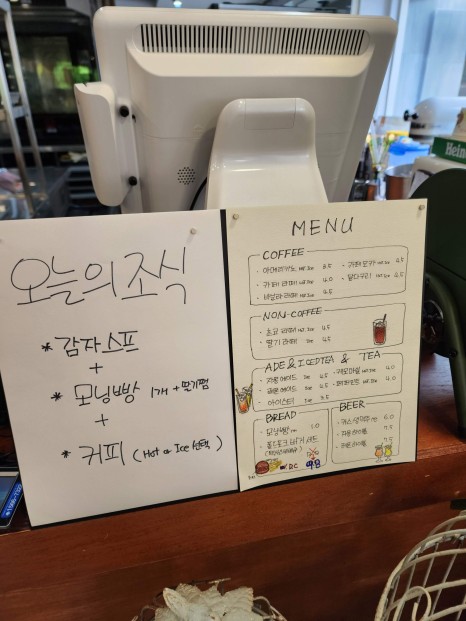 오늘의 조식
* 감자스프
+
* 모닝빵 1개 + 딸기쨈
+
* 커피 (Hot or Ice 선택)
MENU
COFFEE
· 아메리카노 Hot Ice 3.5
· 카페라떼 Hot Ice 4.0
· 바닐라라떼 Hot Ice 4.5
· 카페모카 Hot Ice 4.5
NON-COFFEE
· 초코라떼 Hot Ice 4.5
· 딸기라떼 Ice 4.5
ADE & ICEDTEA & TEA
· 자몽에이드 Ice 4.5
· 레몬에이드 Ice 4.5
· 아이스티 Ice 3.5
· 캐모마일 Hot Ice 4.0
· 페퍼민트 Hot Ice 4.0
BREAD
· 모닝빵 1.0
· 풀드포크 버거 세트
9.8
BEER
6.0
7.5
7.5
Hein